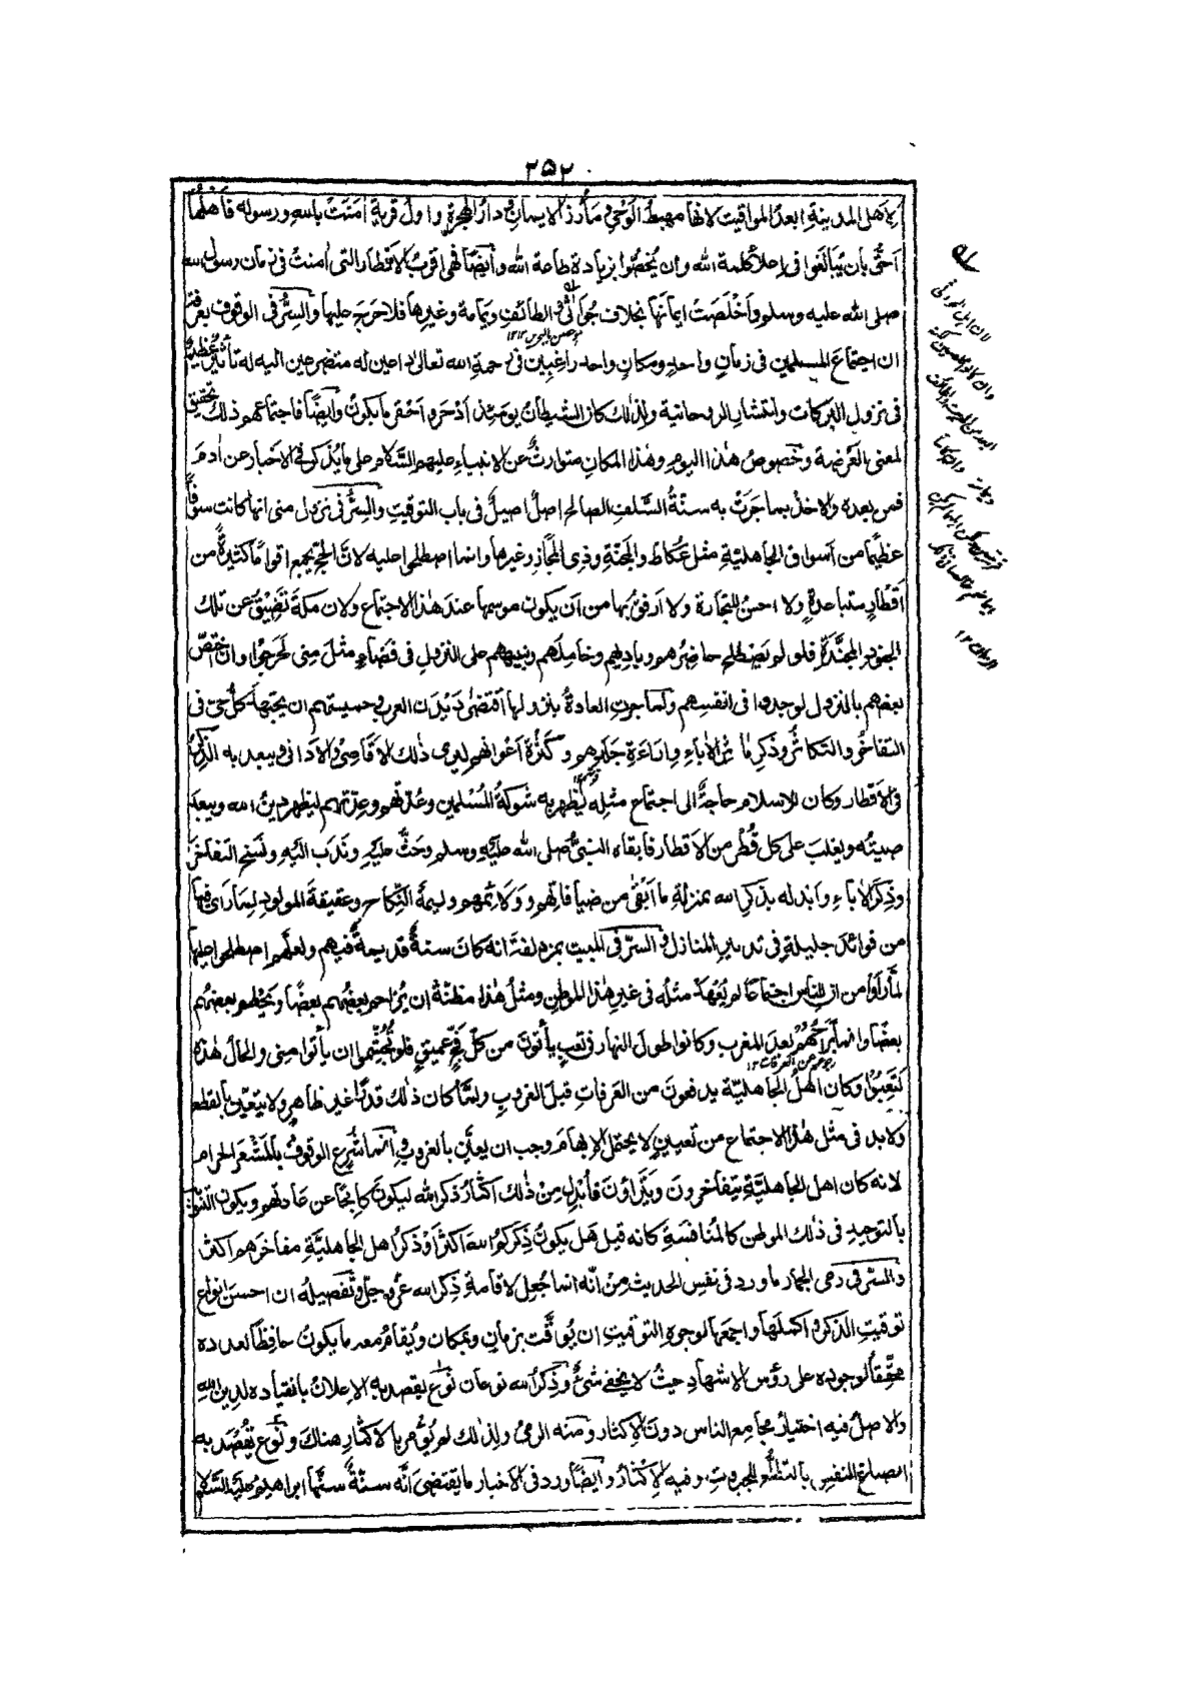 ٢٥٢
لاهل المدينةِ ابعدُ المواقيت لانها مهبطُ الوَحْيِ ومَأرِزُ الايمانِ ودارُ الهجرةِ واول قريةٍ اٰمنَتْ باللهِ ورسوله فاَهْلُها
اَحَقُّ بان يُبالَغوا فى اِعلاءِ كلمة الله وان يُخَصُّوا بزيادة طاعة الله وايضًا فهى اقربُ الاقطار التى اٰمنتْ فى زمان رسول الله
صلى الله عليه وسلم واَخْلَصَتْ ايمانَها بخلاف جُواثٰى والطائف ويَمامة وغيرِها فلا حَرَجَ عليها والسِّرُّ فى الوقوف بعرفة
ان اجتماعَ المسلمين فى زمانٍ واحدٍ ومكانٍ واحدٍ راغبين فى رحمةِ الله تعالىٰ داعين له متضرعين اليه له تأثيرٌ عظيمٌ
فى نزول البركات وانتشارِ الروحانية ولذٰلك كان الشيطانُ يومئذٍ اَدْحَرَ و اَحْقَر ما يكونُ وايضًا فاجتماعهم ذلك تحقيق
لمعنى العَرْضة وخُصوصُ هٰذا اليومِ وهٰذا المكانِ متوارثٌ عن الانبياءِ عليهم السَّلام على ما يُذكر فى الاخبار عن اٰدمَ
فمن بعده والاخذُ بما جَرَتْ به سنّةُ السَّلَفِ الصالحِ اصلٌ اصيلٌ فى باب التوقيتِ والسِّرُّ فى نزول منى انها كانت سوقًا
عظيمًا من اَسواق الجاهليّة مثل عُكاظَ والمجنّةِ وذِى المَجازِ وغيرها وانما اصطلحوا عليه لانَّ الحجَّ يجمع اقوامًا كثيرةً من
اَقطارٍ متباعدةٍ ولا احسنَ للتجارة ولا ارفقَ بها من اَن يكون موسمها عند هٰذا الاجتماع ولان مكةَ تَضِيْقُ عن تلك
الجنود المجنَّدةِ فلو لم يَصطلح حاضِرُهم وبادِيهم وخامِلُهم ونبيههم على النزول فى فَضاءٍ مثلَ مِنى لَحَرِجُوا وان اختصّ
بعضهم بالنزول لوجدوا فى انفسِهم ولما جرتِ العادةُ بنزولها اقتضىٰ دَيْدَنُ العرب وحميتهم ان يجتهدَ كلُّ حىٍّ فى
التفاخُرِ والتكاثُرِ وذكرِ ماٰثرِ الاٰباءِ واِراءَةِ جَلَدِهم وكثرةِ اَعوانهم ليرى ذلك الاقاصِىْ والاَدانى ويبعد به الذِّكرُ
فى الاَقطار وكان للاسلام حاجةٌ الى اجتماعٍ مثلِه ليظهرَ به شوكةُ المُسْلمين وعُدّتهم وعِدّتهم ليظهرَ دينُ الله ويبعدَ
صيتُه ويغلبَ على كل قُطْرٍ من الاقطار فابقاه النبىُّ صلى الله عليهِ وسلم وحَثَّ عليهِ وندَب اليهِ ونَسَخ التفاخرَ
وذِكْرَ الاٰباءِ وابدله بذكرِ الله بمنزلة ما اَبْقٰى من ضيافاتِهم وولائمهم وليمةَ النِّكاحِ وعقيقةَ المولودِ لِما رَاٰى فيها
من فوائدَ جليلةٍ فى تدبيرِ المنازلِ والسرّ فى المبيت بمزدلفةَ انه كانَ سنةً قديمةً فيهم ولعلّهم اصطلحوا عليها
لمّا رَأوْا من ان للناس اجتماعًا لم يُعْهَدْ مثلُه فى غيرِ هٰذا الموطنِ ومثلُ هٰذا مظنّةُ ان يُزاحمَ بعضُهم بعضًا ويَحْطِمَ بعضُهم
بعضًا وانما بَراحُهُم بعدَ المغرب وكانوا طولَ النهار فى تعبٍ يأتونَ من كلِّ فَجٍّ عميقٍ فلو تَجَشَّموا ان يأتوا منى والحالُ هٰذه
لَتَعِبُوا وكان اَهلُ الجاهليّة يدفعونَ من العرفاتِ قبلَ الغروبِ ولمَّا كان ذٰلك قدرًا غير ظاهرٍ ولا يتعيّن بالقطع
ولا بد فى مثل هٰذا الاجتماعِ من تعيينٍ لا يحتمل الابهامَ وجب ان يعيَّن بالغروبِ وانما شُرِع الوقوفُ بالمَشْعَرِ الحرام
لانه كان اهل الجاهليّةِ يتفاخرون ويتراؤن فاُبْدِلَ مِنْ ذٰلك اكثارُ ذكرِ الله ليكونَ كابِحًا عن عادتهم ويكون التنويهُ
بالتوحيدِ فى ذٰلك الموطن كالمُنافَسةِ كانه قيل هَل يكونُ ذِكركم الله اكثرَ اَوْ ذكرُ اهل الجاهليَّةِ مفاخرَهم اكثرَ
والسرّ فى رمى الجمار ما ورد فى نفسِ الحديث مِن انّه انما جُعِل لاقامةِ ذِكر الله عزّ وجلّ وتَفصيلُه ان احسنَ انواعِ
توقيتِ الذكرِ واكملَها واجمعَها لوجوه التوقيتِ ان يُوقَّت بزمانٍ وبمكانٍ ويُقامَ معه ما يكونُ حافظًا لعدده
محقِّقًا لوجوده على رؤس الاشهادِ حيثُ لا يخفى شئٌ وذِكرُ الله نوعان نوعٌ يقصد به الاِعلانُ بانقياده لدين الله
والاصلُ فيه اختيارُ مجامع الناس دونَ الاِكثار ومنه الرمىُ ولذٰلك لم يُؤمر بالاكثارِ هناك ونوعٌ يُقْصَد به
انصباغ النفسِ بالتطلُّعِ للجبروت وفيه الاِكثارُ وايضًا ورد فى الاخبار ما يقتضى اَنَّه سنّةٌ سنّها ابراهيمُ عليهِ السَّلام